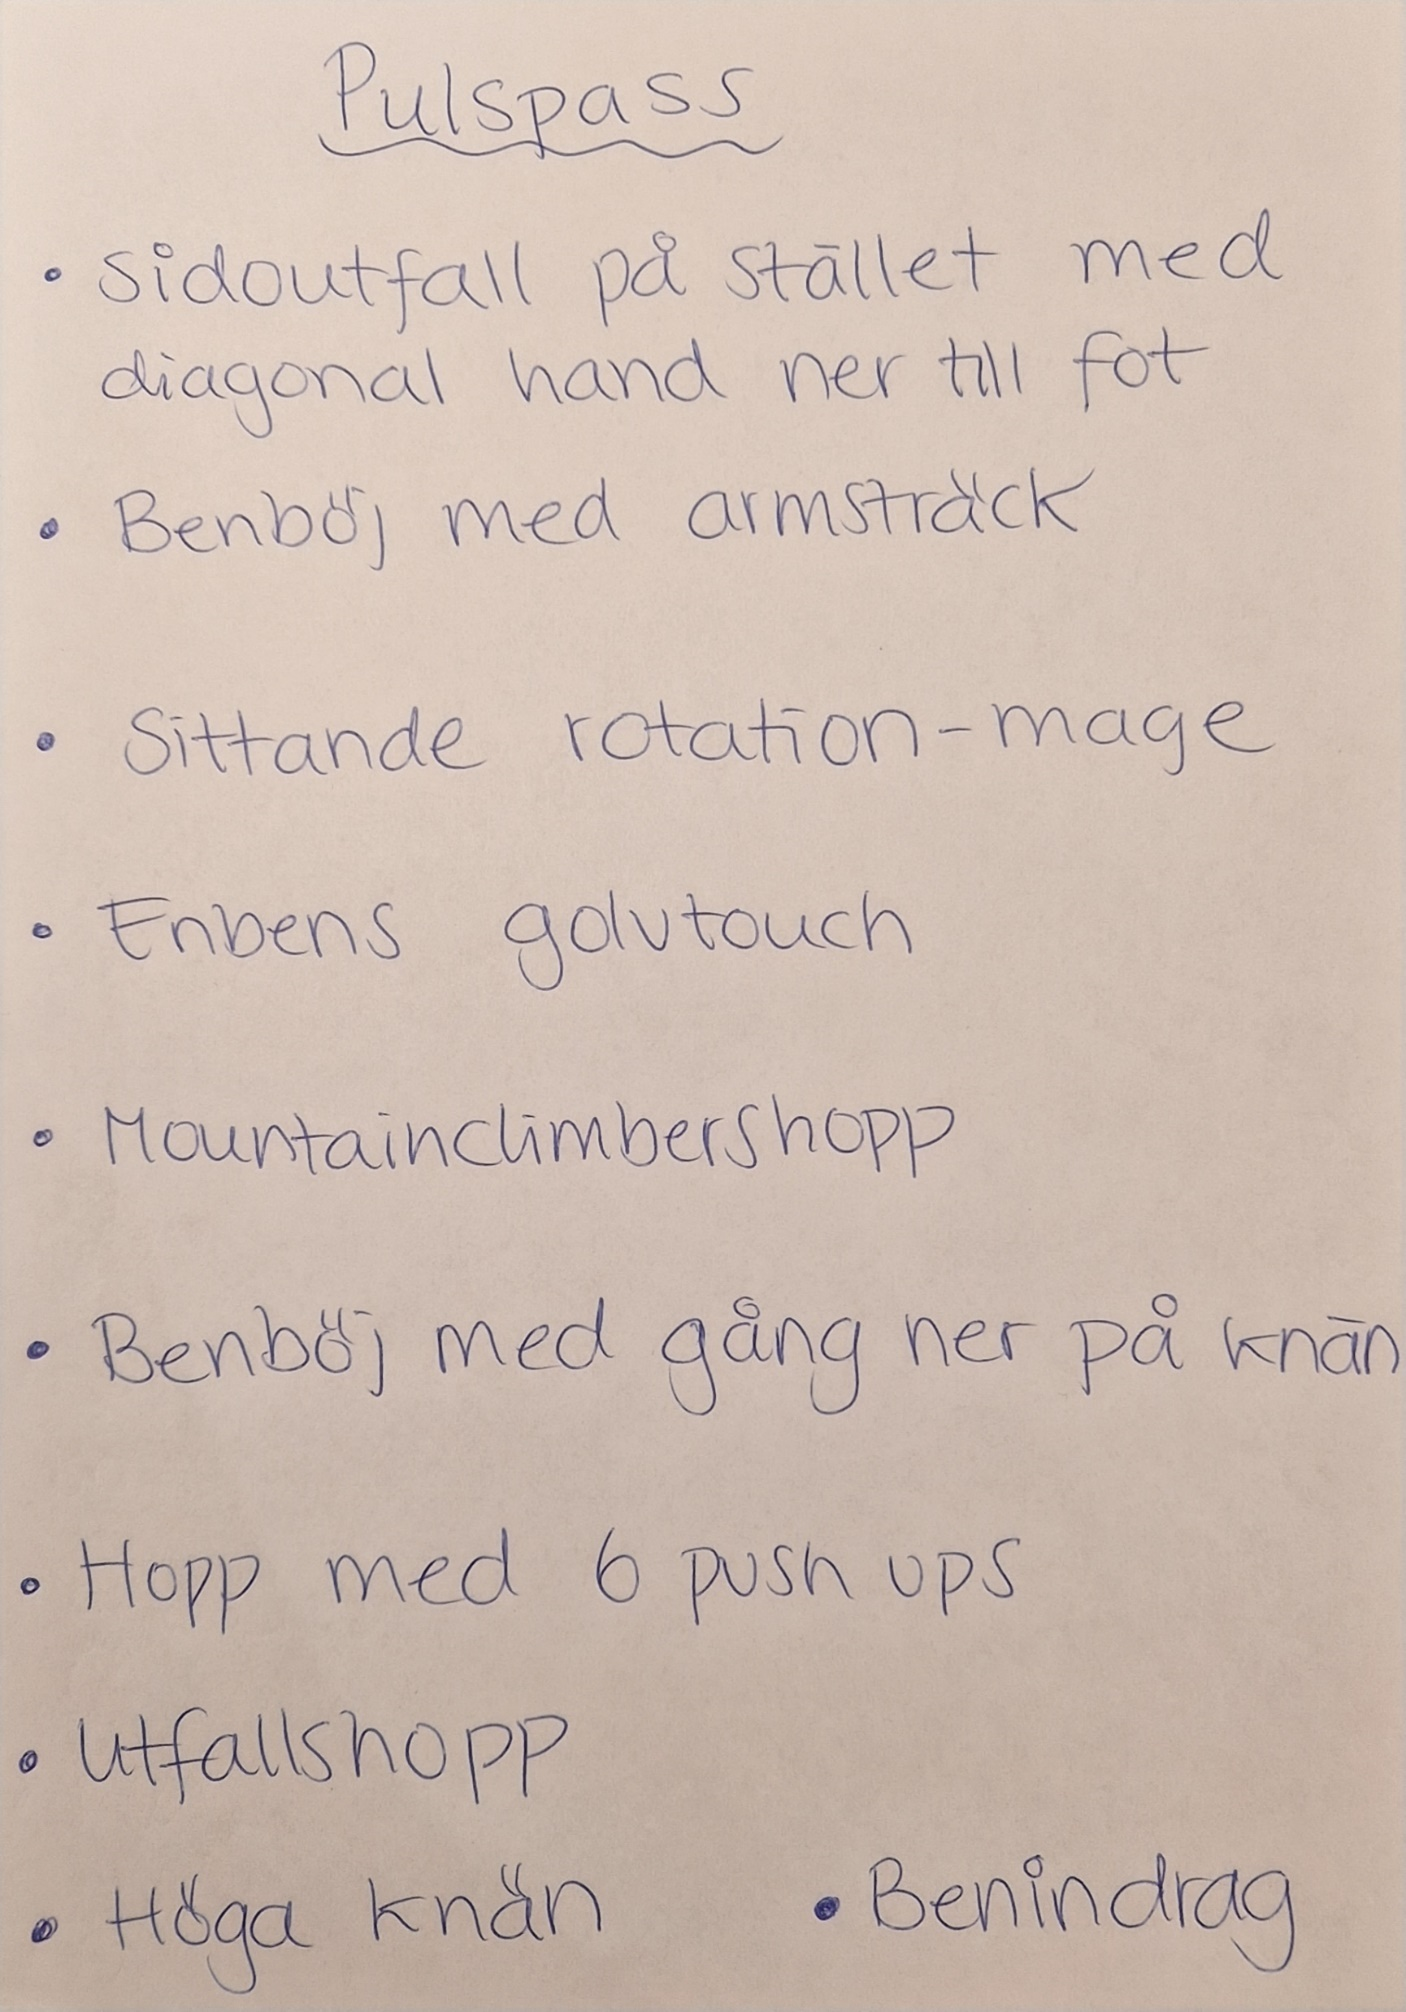 Pulspass
• Sidoutfall på stället med
diagonal hand ner till fot
• Benböj med armsträck
• Sittande rotation - mage
• Enbens golvtouch
• Mountainclimbershopp
• Benböj med gång ner på knän
• Hopp med 6 push ups
• Utfallshopp
• Höga knän • Benindrag